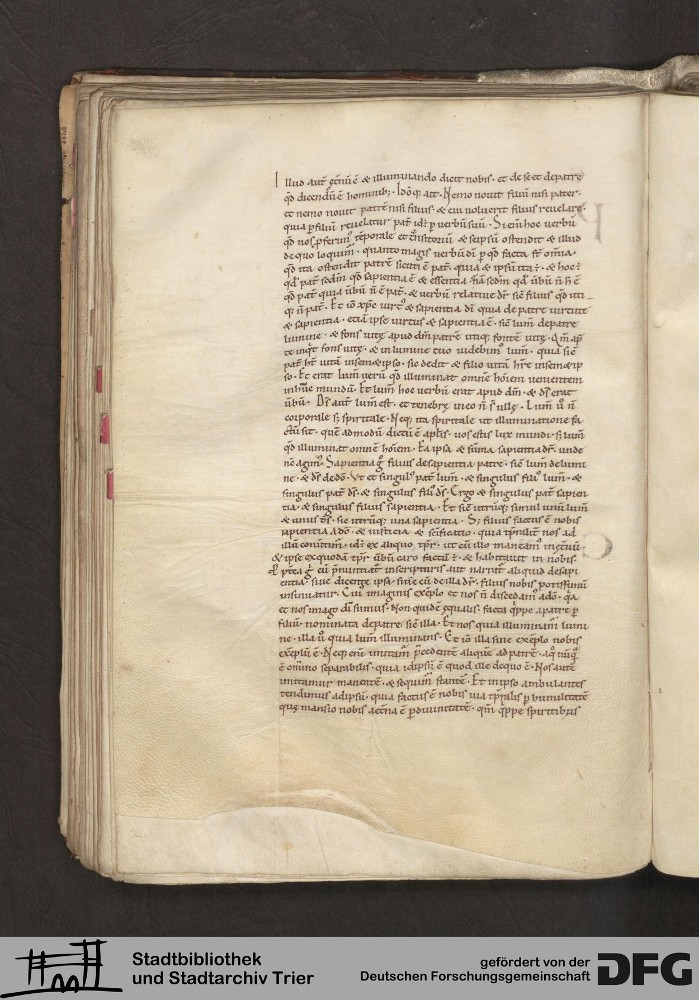 Illud aut̄ gen̄uē & illuminando dicit nobis · et de se et de patre
qd̄ dicendū ē hominib; · Idõq; ait · Nemo novit filiū nisi pater ·
et nemo novit patrē nisi filius · & cui voluerit filius revelare ·
quia ꝑ filiū revelatur pat̄ · id; ꝑ verbū suū · Si enī hoc verbū
qd̄ nos ꝑferim᷒ tēporale et t̄nsitoriū & seipsū ostendit & illud
de quo loquim᷒ · quanto magis verbū dī ꝑ qd̄ facta st̄ om̄ia ·
qd̄ ita ostendit patrē sicuti ē pat̄ · quia & ipsū ita ; & hoc ;
qd̄ pat̄ · sedm̄ qd̄ sapientia ē & essentia · nā sedm̄ qd̄ ūbū n̄ h̄ ē
qd̄ pat̄ quia ūbū n̄ ē pat̄ · & verbū relative dr̄ sic̄ filius qd̄ uti
q; n̄ pat̄ · Et iō xp̄c virt᷒ & sapientia dī quia de patre virtute
& sapientia · etiā ipse virtus & sapientia ē · sic̄ lum̄ de patre
lumine · & fons vitę apud dm̄ patrē utiq; fontē vitę · Qm̄ ap̄
te inqt̄ fons vitę · & in lumine tuo videbim᷒ lum̄ · quia sic̄
pat̄ ht̄ vitā in semetipso · sic dedit & filio vitā hr̄e in semetip
so · Et erat lum̄ verū qd̄ illuminat omnē hōiem venientem
in hūc mundū · Et lum̄ hoc verbū erat apud dm̄ · & ds̄ erat
ūbū · Ds̄ aut̄ lum̄ est · et tenebrę in eo n̄ s̄ ullę · Lum̄ ů n̄
corporale s; spiritale · Neq; ita spiritale ut illuminatione fa
ctū sit · quē admodū dictū ē aplis̄ · vos estis lux mundi · s; lum̄
qd̄ illuminat omnē hōiem · Ea ipsa & sūma sapientia ds̄ · unde
nc̄ agim᷒ · Sapientia g̊ filius de sapientia patre · sic̄ lum̄ de lumi
ne · & ds̄ de dō · Ut et singul᷒ pat̄ lum̄ · & singulus fili᷒ lum̄ · &
singulus pat̄ ds̄ · & singulus fili᷒ ds̄ · Ergo & singulus pat̄ sapien
tia · & singulus filius sapientia · Et sic̄ utrūq; simul unū lum̄
& unus ds̄ · sic utrūq; una sapientia · S; filius factus ē nobis
sapientia a dō · & iusticia & sc̄ificatio · quia tp̄ralit̄ nos ad
illū convtim᷒ · id; ex aliquo tp̄r · ut cū illo maneam᷒ in etnū ·
& ipse ex quodā tp̄r · ūbū caro factū ; & habitavit in nobis ·
ꝓptea g̊ cū ꝓnuntiat̄ in scripturis aut narrat̄ aliquid de sapi
entia · sive dicente ipsa · sive cū de illa dr̄ · filius nobis potissimū
insinuatur · Cui᷒ imaginis exēplo et nos n̄ discedam᷒ a dō · q̄a
et nos imago dī sumus · Non quidē equalis · facta q̄ppe a patre ꝑ
filiū · nōminata de patre sic̄ illa · Et nos quia illuminam᷒ lumi
ne · illa ů quia lum̄ illuminans · Et iō illa sine exēplo nobis
exēplū ē · Neq; enī imitatr᷒ p̄cedentē aliquē ad patrē · a q̊ nūq̄
ē om̄ino separabilis · quia idipsū ē quod ille de quo ē · Nos autē
imitamur manentē · & sequim᷒ stantē · Et in ipso ambulantes
tendimus ad ipsū · quia factus ē nobis via tp̄ralis ꝑ humilitatē
quę mansio nobis aet̄na ē ꝑ divinitatē · qm̄ q̄ppe spiritibus
P
C
Stadtbibliothek
und Stadtarchiv Trier
gefördert von der
Deutschen Forschungsgemeinschaft
DFG